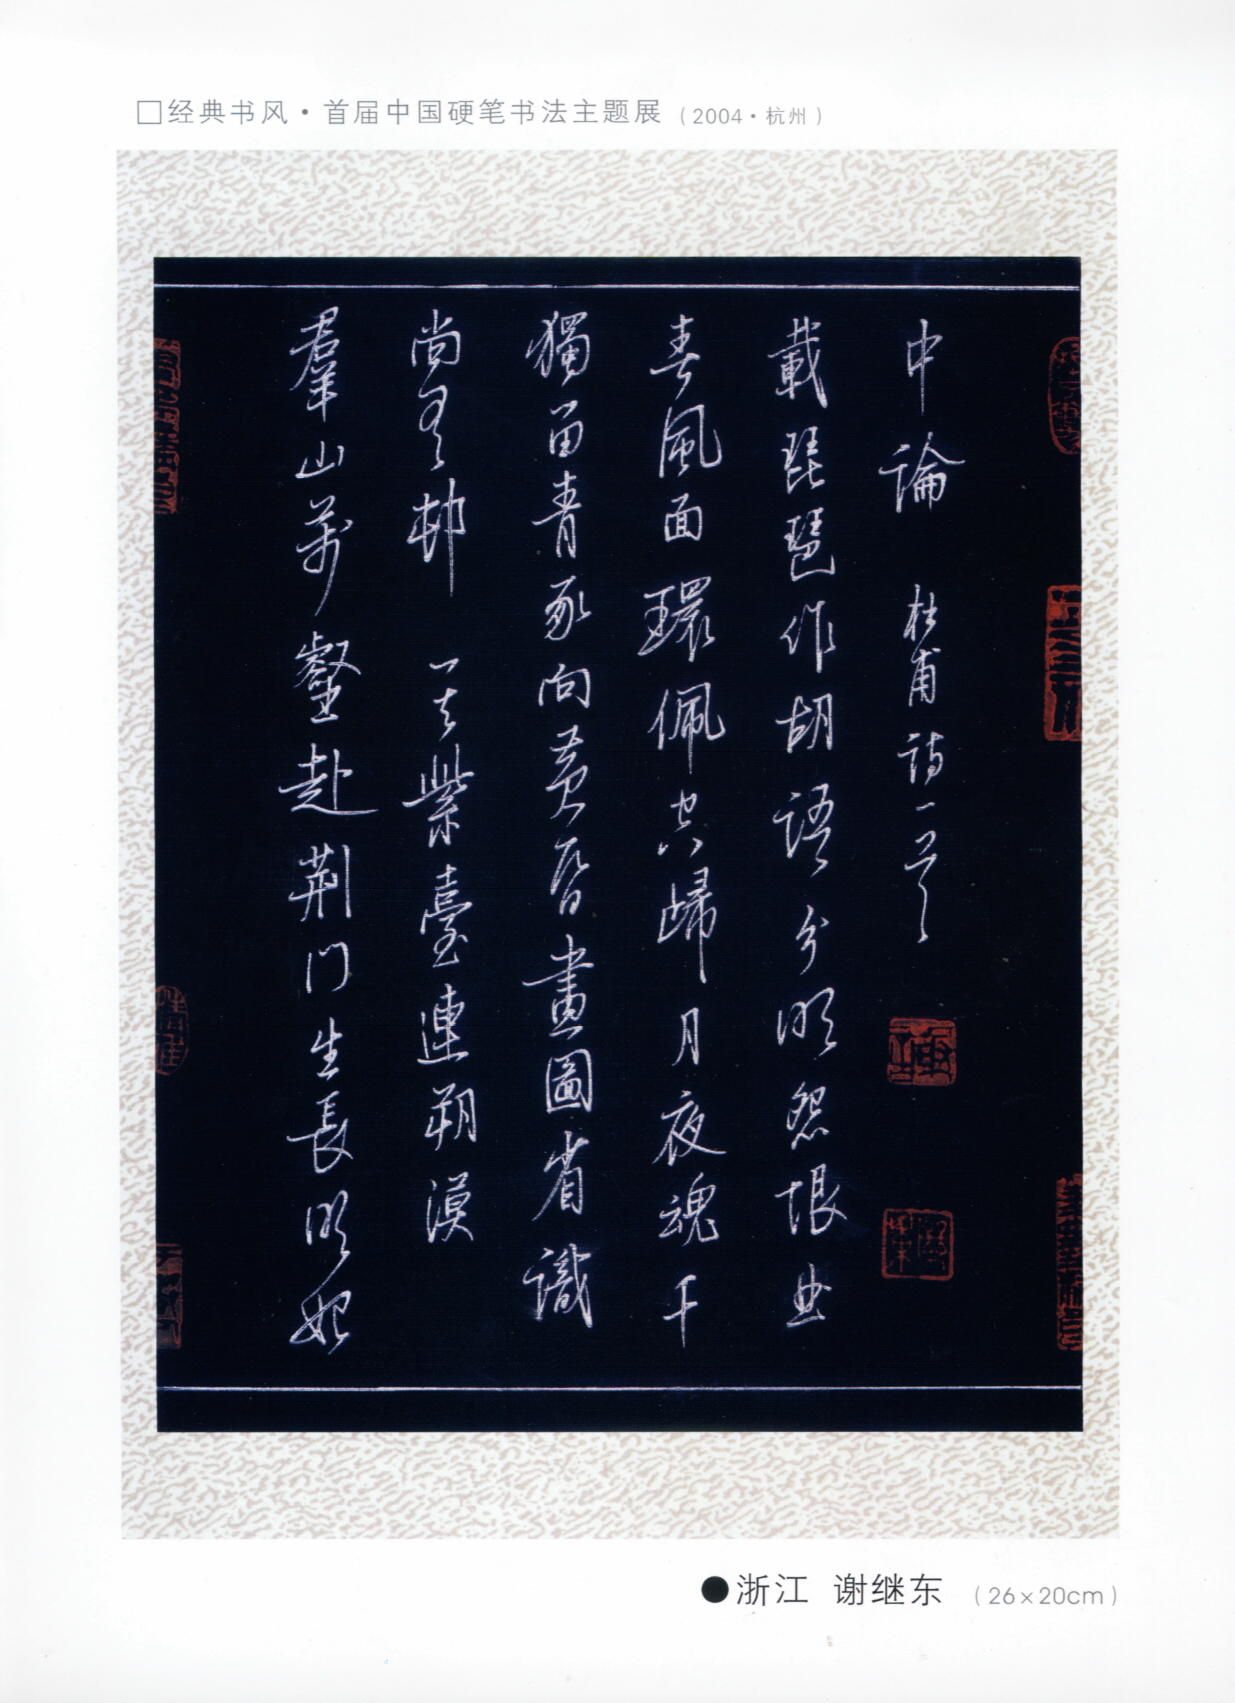 □经典书风·首届中国硬笔书法主题展（2004·杭州）
羣山萬壑赴荆门生長明妃
尚有邨 一去紫臺連朔漠
獨留青冢向黄昏畫圖省識
春風面環佩空歸月夜魂千
載琵琶作胡語分明怨恨曲
中論 杜甫诗一首
●浙江 谢继东 （26×20cm）